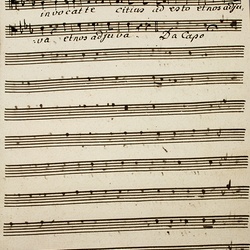 invocatte citius ad esto etnos adju,
va etnos adjuva Da Capo